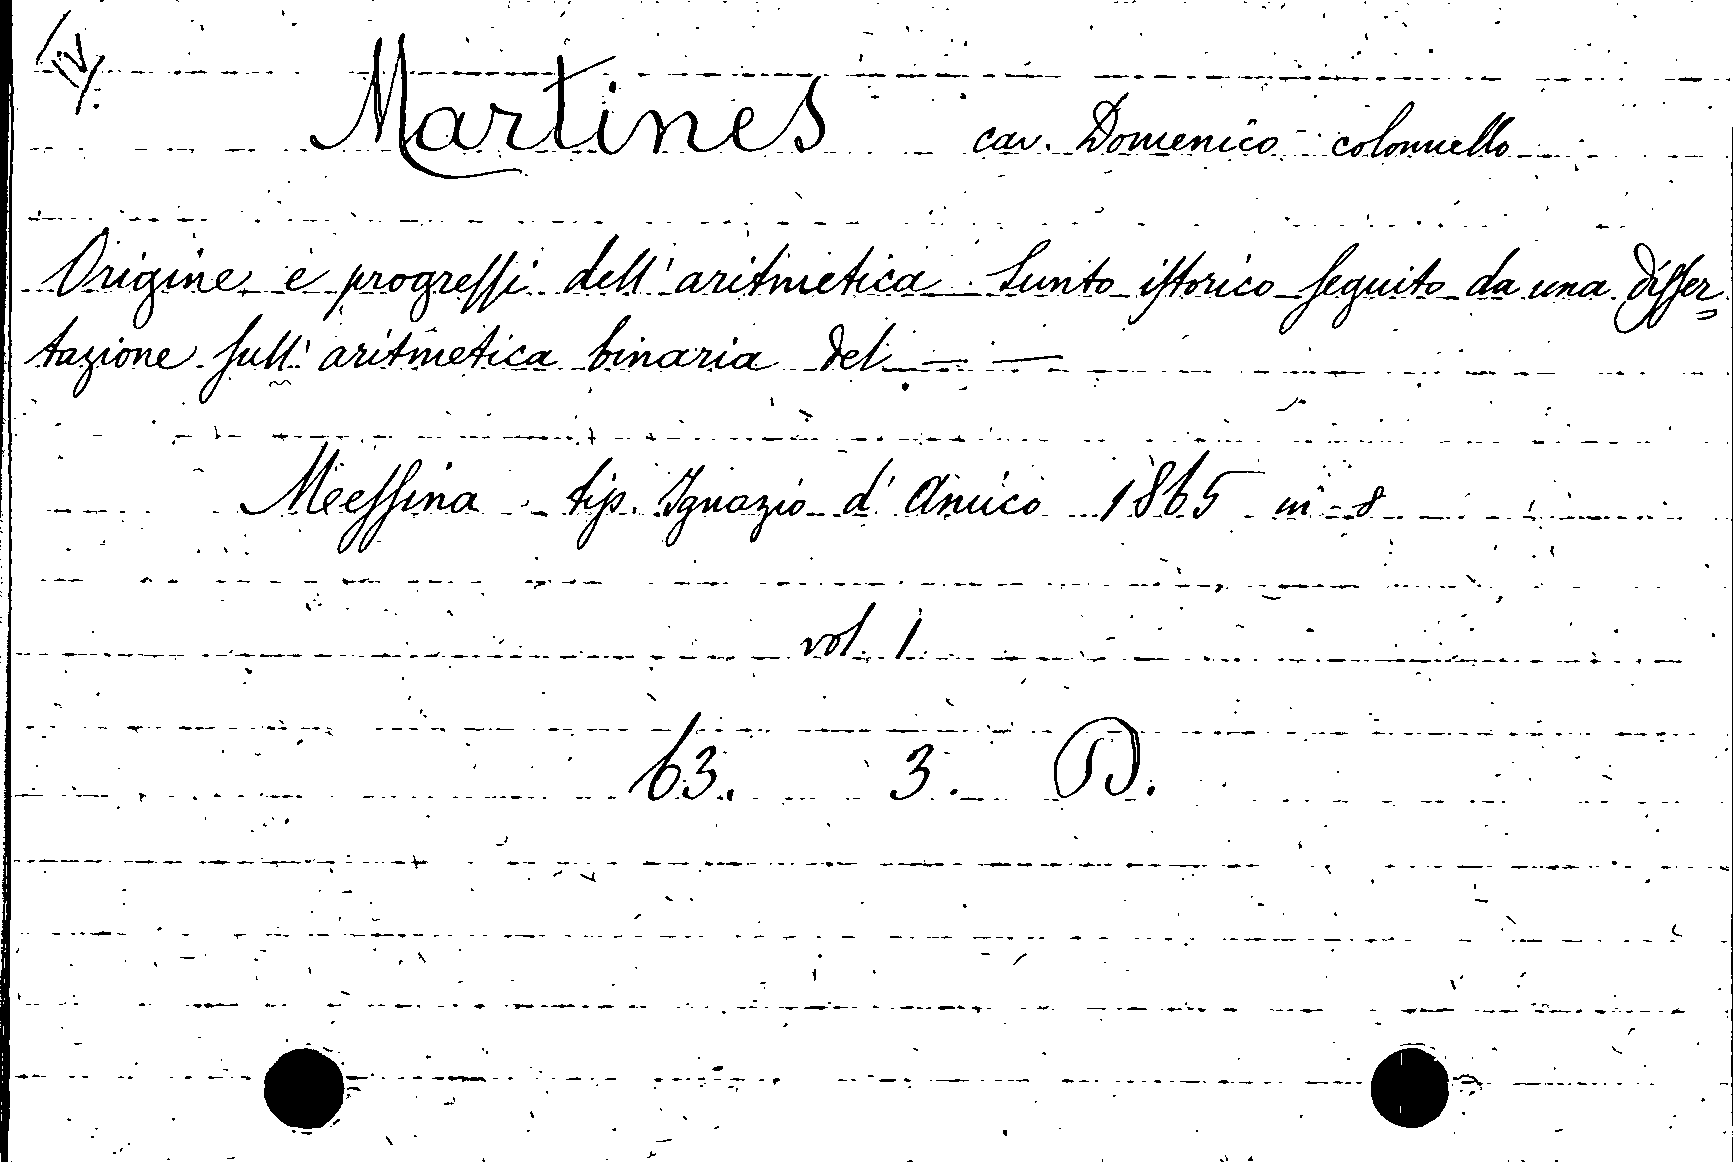 IV
Martines cav. Domenico colonnello
Origine e progressi dell'aritmetica. Sunto istorico seguito da una disser=
tazione sull'aritmetica binaria del — —
Messina tip. Ignazio d'Amico 1865 in 8
vol. 1
63. 3. D.